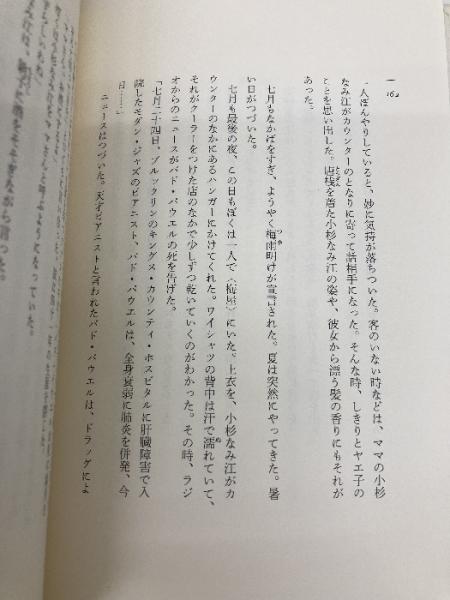 162
一人ぼんやりしていると、妙に気持が落ちついた。客のいない時などは、ママの小杉
なみ江がカウンターのとなりに寄って話相手になった。そんな時、しきりとヤエ子の
ことを思い出した。唐桟を着た小杉なみ江の姿や、彼女から漂う髪の香りにもそれが
あった。
七月もなかばをすぎ、ようやく梅雨明けが宣言された。夏は突然にやってきた。暑
い日がつづいた。
七月も最後の夜、この日もぼくは一人で〈梅屋〉にいた。上衣を、小杉なみ江がカ
ウンターのなかにあるハンガーにかけてくれた。ワイシャツの背中は汗で濡れていて、
それがクーラーをつけた店のなかで少しずつ乾いていくのがわかった。その時、ラジ
オからのニュースがバド・パウエルの死を告げた。
「七月二十四日、ブルックリンのキングス・カウンティ・ホスピタルに肝臓障害で入
院したモダン・ジャズのピアニスト、バド・パウエルは、全身衰弱に肺炎を併発、今
日……」
ニュースはつづいた。天才ピアニストと言われたバド・パウエルは、ドラッグによ